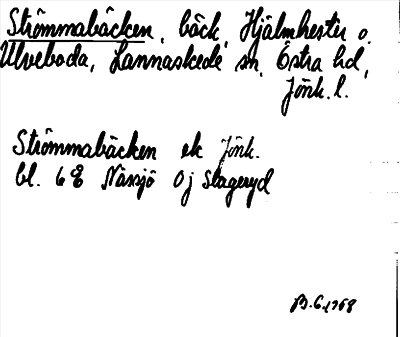 Strömmabäcken, bäck, Hjälmhester o.
Ulveboda, Lannaskede sn, Östra hd,
Jönk. l.
Strömmabäcken ek Jönk.
bl. 6 E Nässjö 0 j Slageryd
B.G. 1968